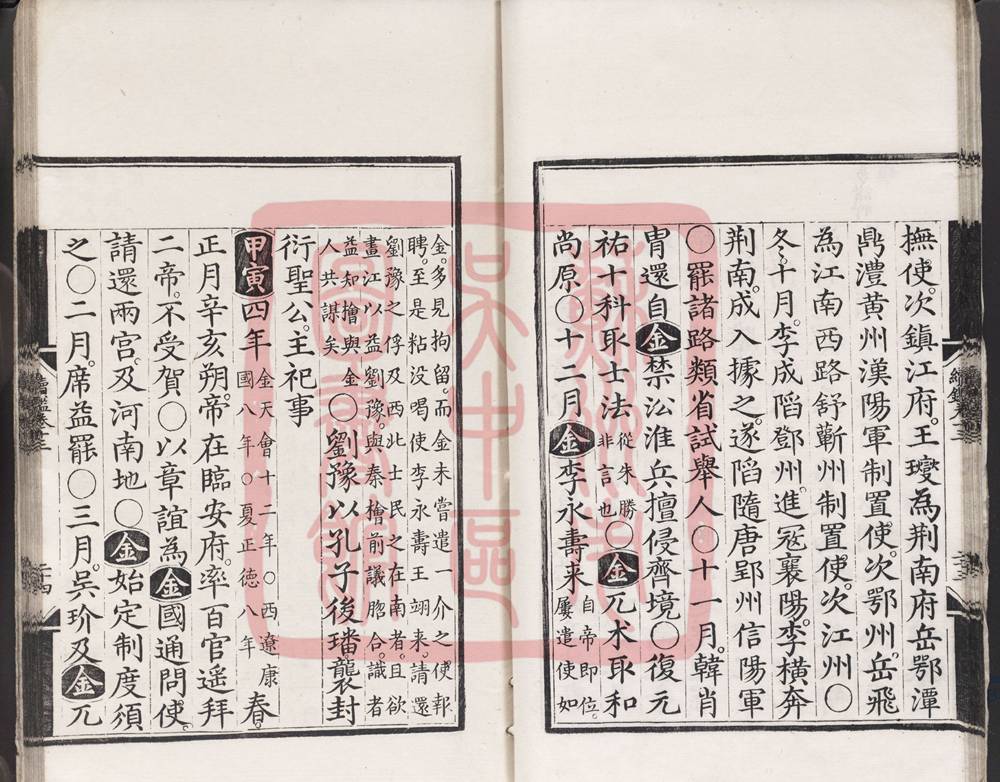 撫使。次鎮江府。王𤫉為荆南府岳鄂潭
鼎澧黄州漢陽軍制置使。次鄂州。岳飛
為江南西路舒蘄州制置使。次江州〇
冬。十月。李成陷鄧州。進冦襄陽。李横奔
荆南。成入據之。遂陷隨唐郢州信陽軍
〇罷諸路類省試舉人〇十一月。韓肖
胄還自金禁淤淮兵擅侵齊境〇復元
祐十科取士法從朱勝非言也〇金兀术取和
尚原〇十二月金李永壽来自帝即位。屢遣使如
金。多見拘留。而金未嘗遣一介之使報
聘。至是粘没喝使李永壽王翊来。請還
劉豫之俘及西北士民之在南者。且欲
畫江以益劉豫。與秦檜前議脗合。識者
益知檜與金人共謀矣〇劉豫以孔子後璠襲封
衍聖公。主祀事
甲寅四年金天會十二年〇西遼康國八年〇夏正德八年春。
正月辛亥朔。帝在臨安府。率百官遥拜
二帝。不受賀〇以章誼為金國通問使。
請還兩宫。及河南地〇金始定制度須
之〇二月。席益罷〇三月。吳玠及金兀